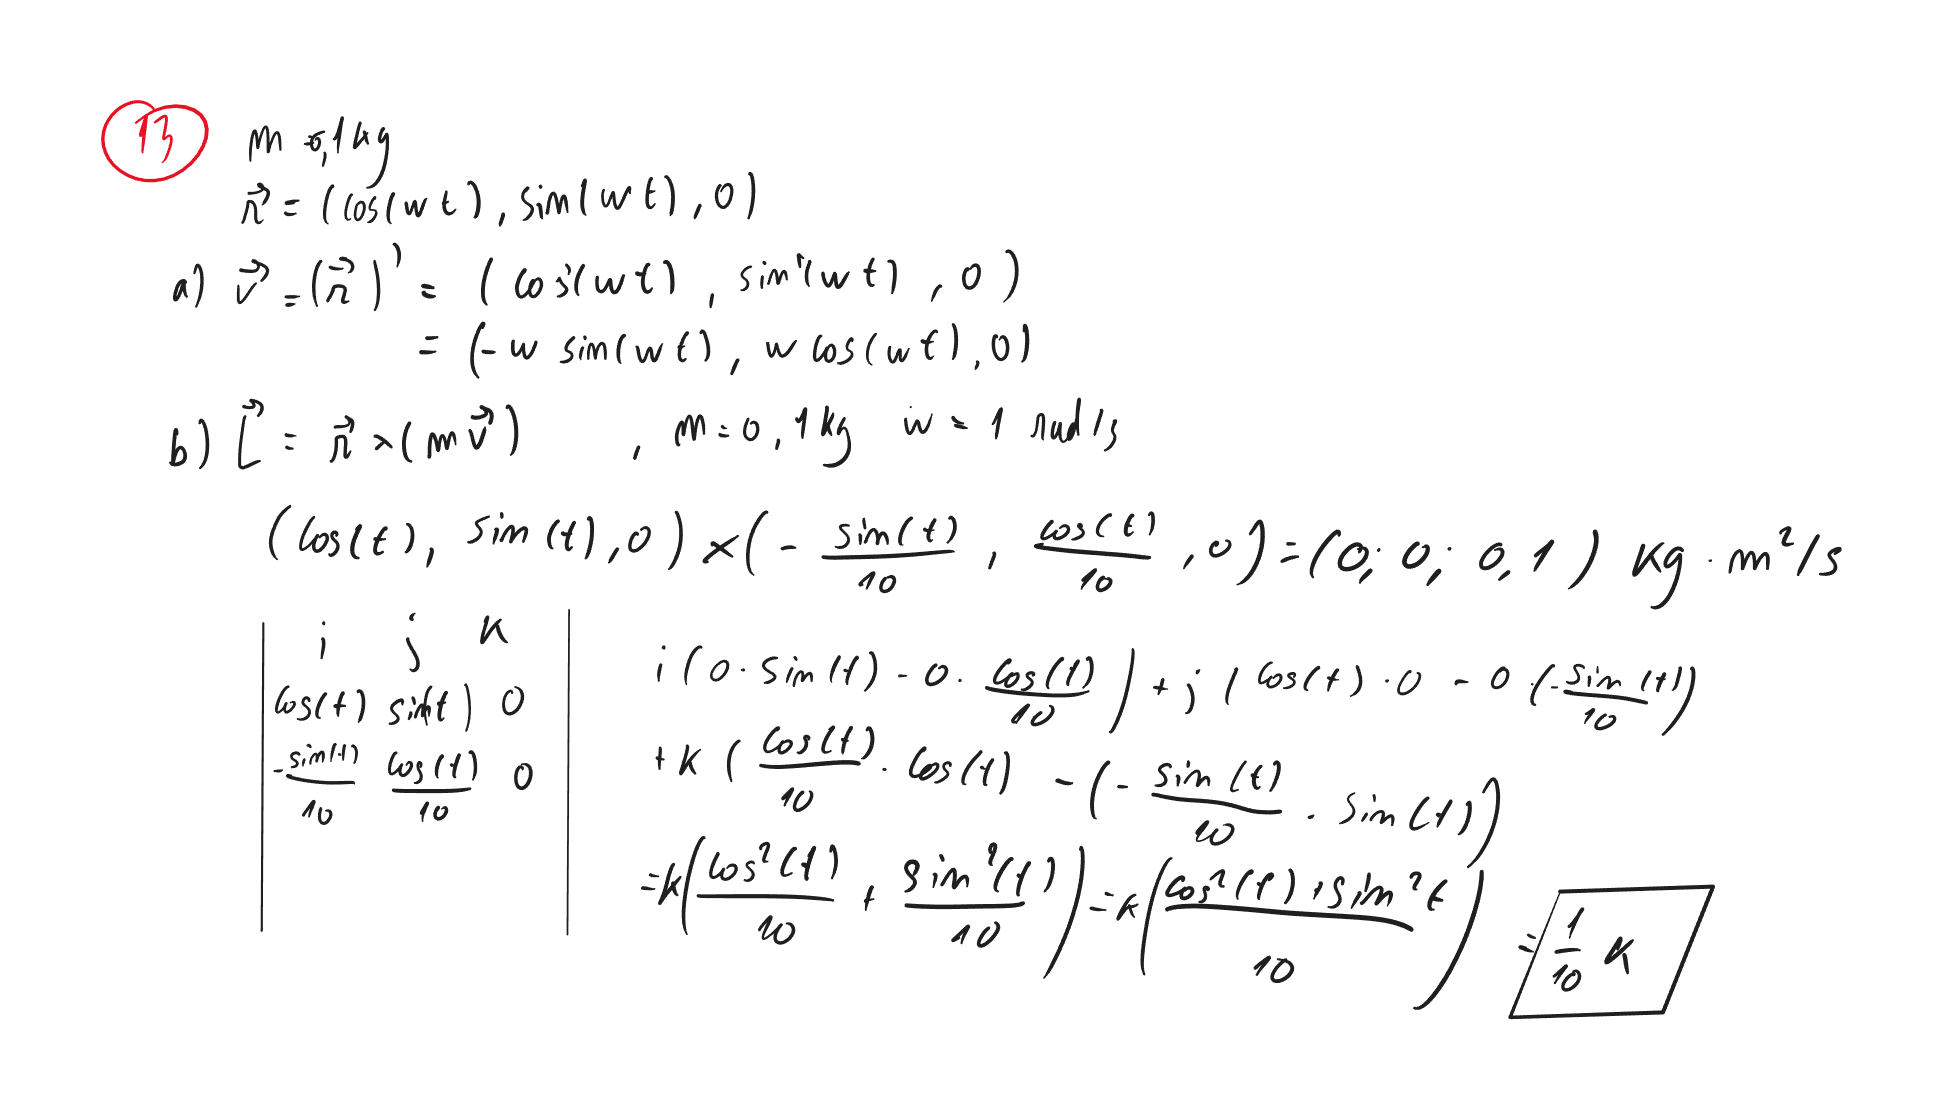 13
m = 0,1 kg
r⃗ = (cos(wt), sin(wt), 0)
a) v⃗ = (r⃗)' = (cos'(wt), sin'(wt), 0)
= (-w sin(wt), w cos(wt), 0)
b) L⃗ = r⃗ × (m v⃗) , m = 0,1 kg w = 1 rad/s
(cos(t), sin(t), 0) × (- sin(t)/10, cos(t)/10, 0) = (0; 0; 0,1) kg · m²/s
i j k
cos(t) sin(t) 0
-sin(t)/10 cos(t)/10 0
i (0 · sin(t) - 0 · cos(t)/10) + j (cos(t) · 0 - 0 · (-sin(t)/10)
+ k (cos(t)/10 · cos(t) - (- sin(t)/10 · sin(t))
= k(cos²(t)/10 + sin²(t)/10) = k(cos²(t) + sin² t/10)
= 1/10 k